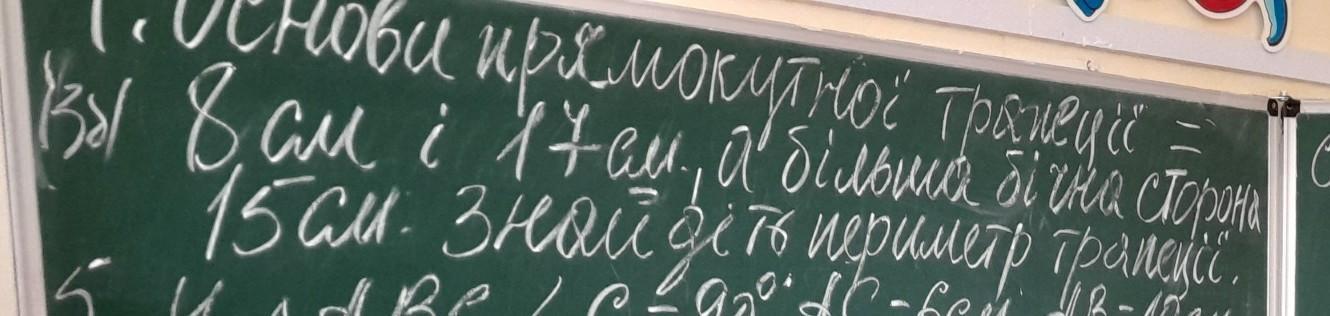 1. Основи прямокутної трапеції =
(3б) 8 см і 17 см., а більша бічна сторона
15 см. Знайдіть периметр трапеції.
5 ABC C = 90°. AC = 6см